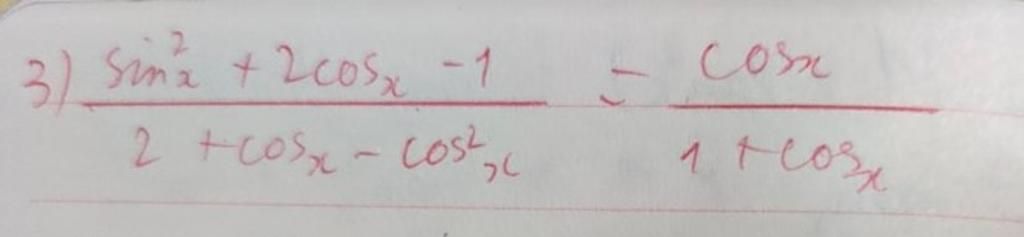 3) sin²x + 2cosx - 1 = cosx
2 + cosx - cos²x 1 + cosx